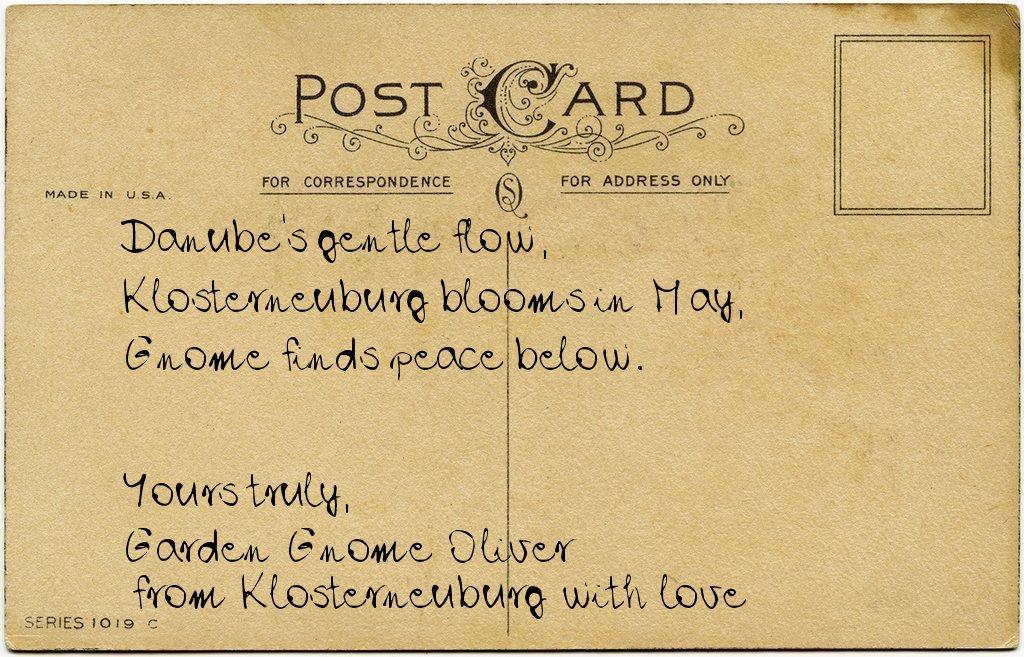 POST CARD
FOR CORRESPONDENCE
FOR ADDRESS ONLY
MADE IN U.S.A.
Danube's gentle flow,
Klosterneuburg blooms in May,
Gnome finds peace below.
Yours truly,
Garden Gnome Oliver
from Klosterneuburg with love
SERIES 1019 C